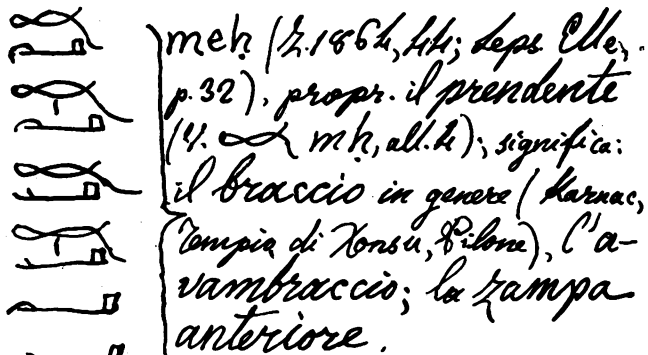 meḥ (Z. 1864, 44; Leps. Elle,
p. 32), propr. il prendente
(V. mḥ, all. 4); significa:
il braccio in genere (Karnac,
Tempio di Xonsu, Pilone), l'a-
vambraccio; la zampa
anteriore.